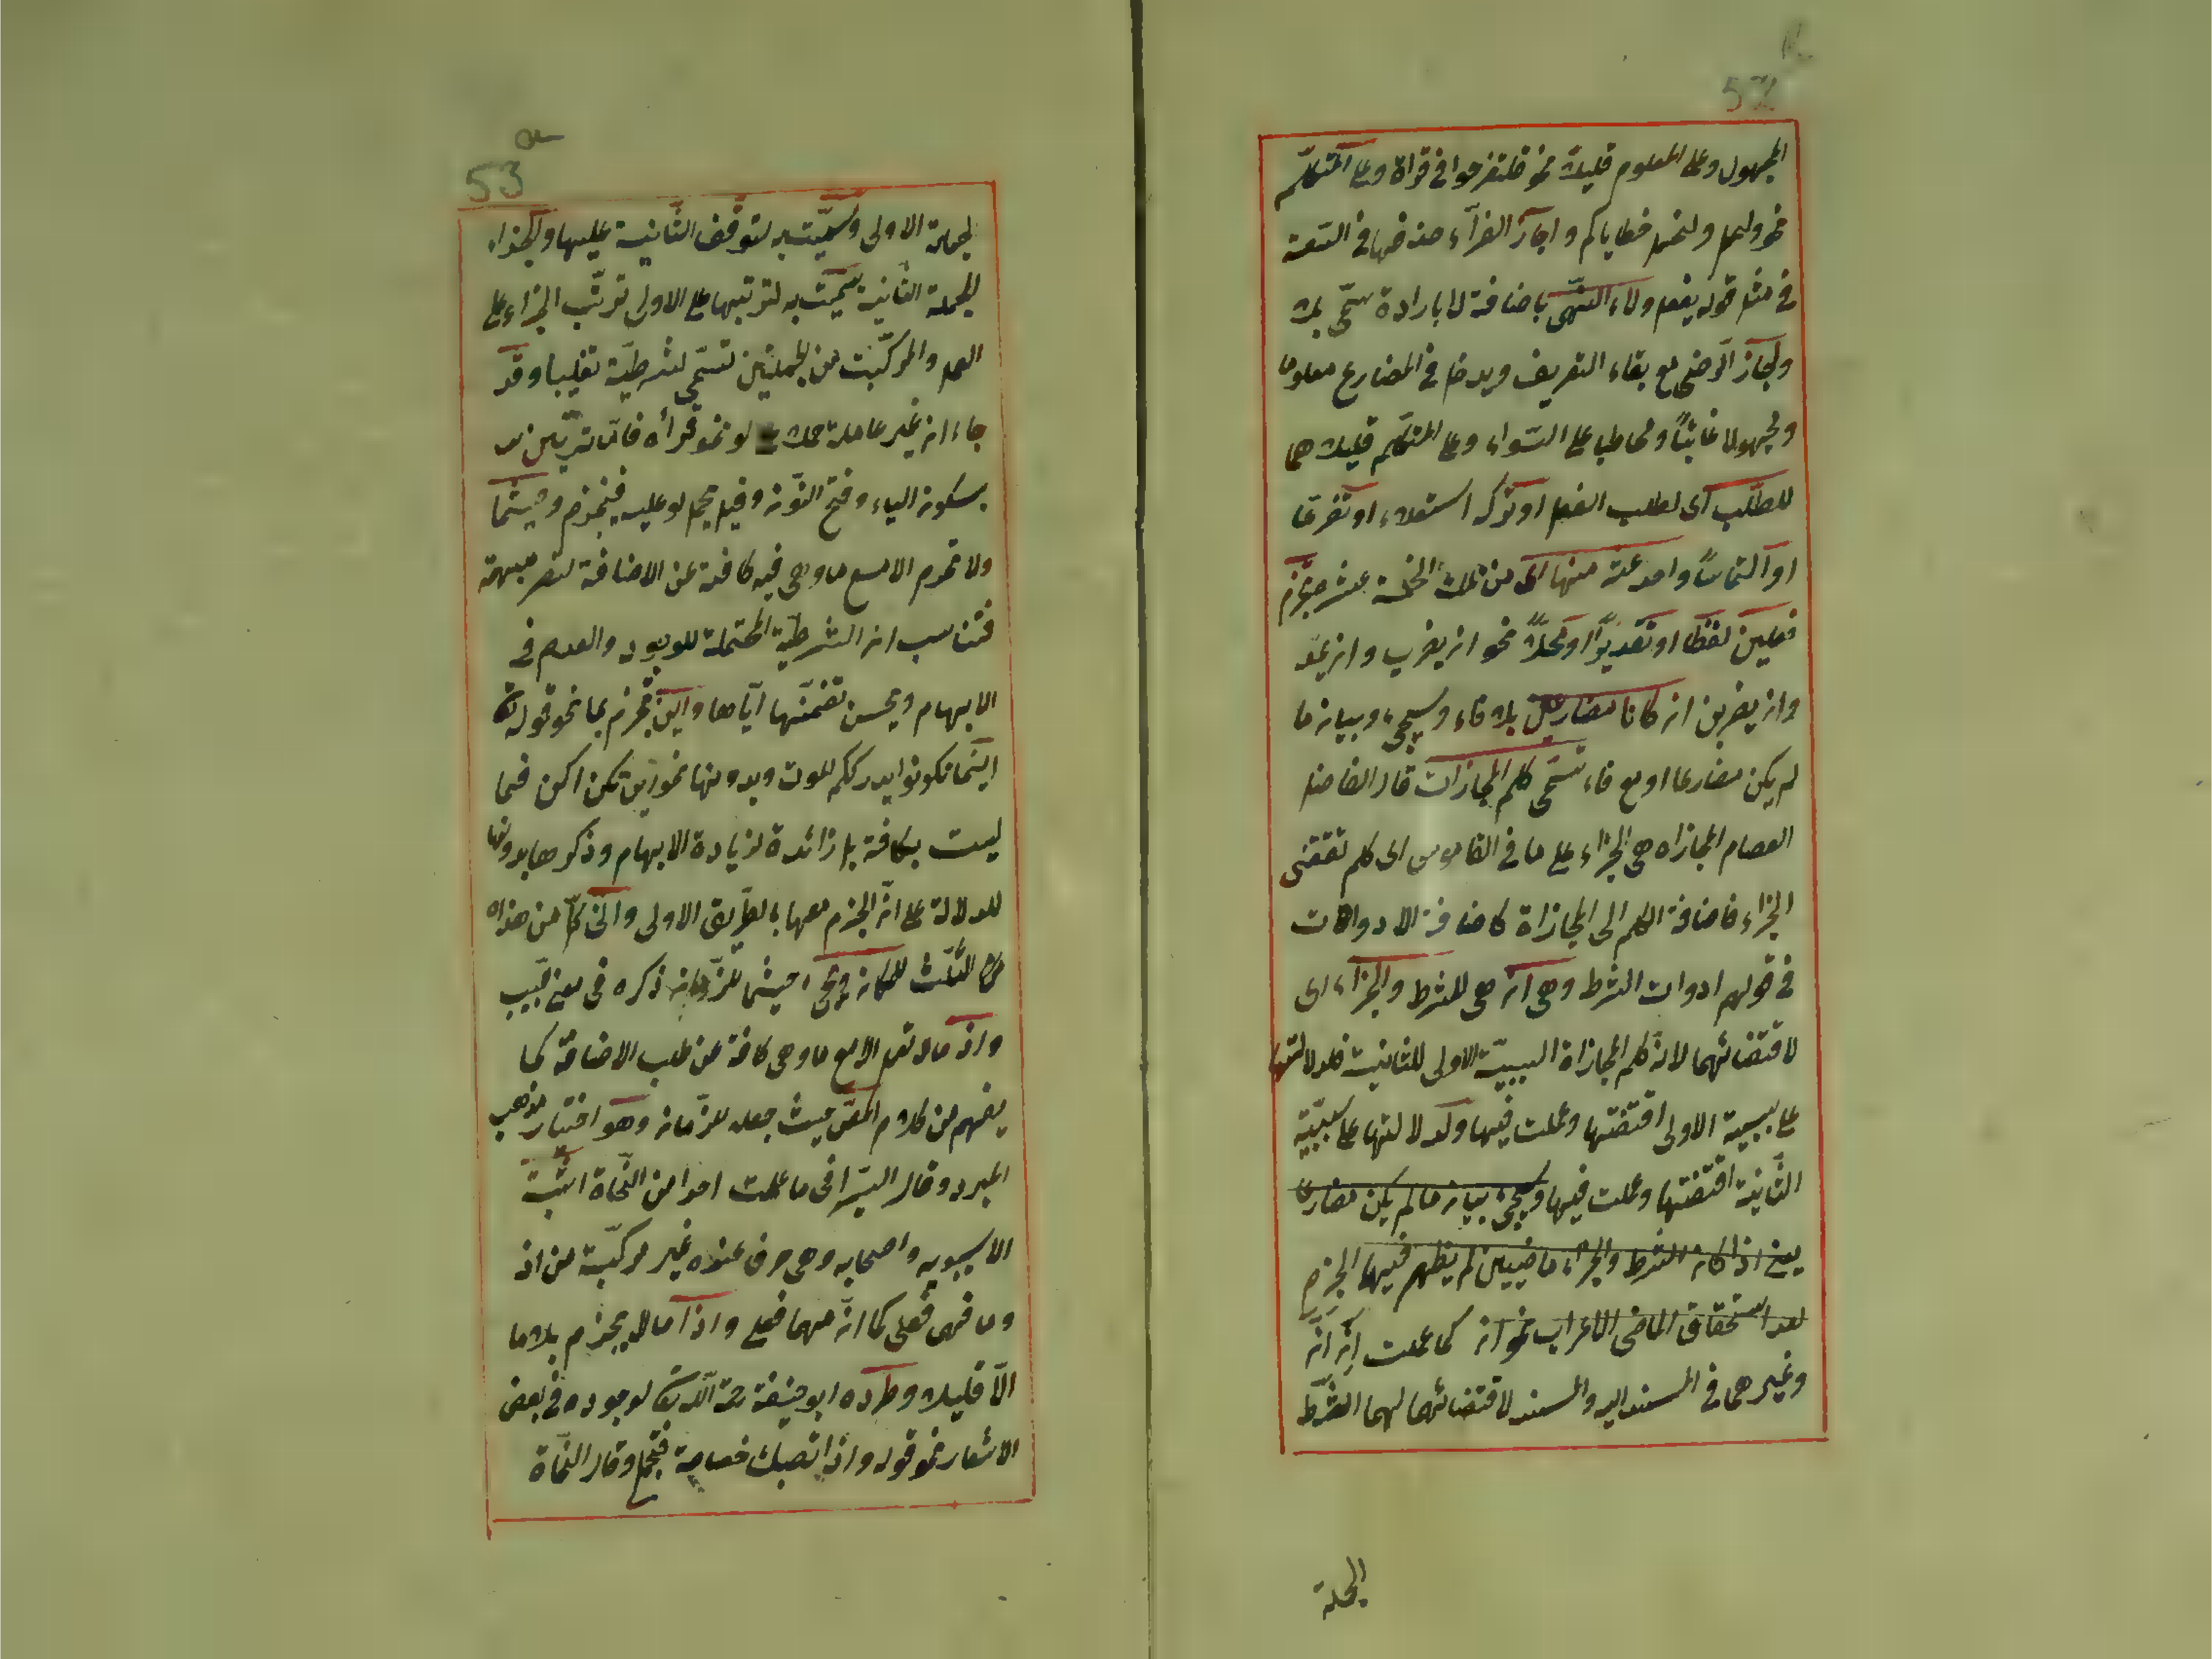 52
المجهول وعلى المعلوم قليلا نحو فلتفرحوا في قراة وعلى المتكلم
نحو ولنحمل خطاياكم واجاز الفرآء حذفها في السعة
في مثل قوله يفعل ولاء النهى باضافة لا بارادة سمّى بلا
ومجاز الرضى مع بقاء التعريف ويدخل في المضارع معلوما
ومجهولا غائبًا ومخاطبا على السّواء وعلى المتكلم قليلا هما
للطّلب اى لطلب الفعل او تركه استعلاء او تضرعا
او التماسًا واحد عشر منها اى من تلك الخمسة عشر تجزم
فعلين لفظا او تقديرًا او محلاًّ نحو ان يضرب وان يمدّ
وان يضربن ان كانا مضارعين بلا فاء وسيجئ وبيان ما
لم يكن مضارعا او مع فاء تسمّى كلم المجازات قال الفاضل
العصام المجازاه هى الجزاء على ما في القاموس اى كلم تقتضى
الجزاء فاضافة الكلم الى المجازاة كاضافة الادوات
في قولهم ادوات الشرط وهى ان هى للشرط والجزآء اى
لاقتضائهما لانّ كلم المجازاة لسببيّة الاولى للثانية فلدلالتها
على سببية الاولى اقتضتها وعملت فيها ولدلالتها على مسببّية
الثّانية اقتضتها وعملت فيها وسيجئ بيان ما لم يكن مضارعا
يعنى اذا كان الشرط والجزاء ماضيين لم يظهر فيهما الجزم
لعد استحقاق الماضى الاعراب نحو ان كما عملت انّ
وغيرهما في المسند اليه والمسند لاقتضائهما لهما الشّرط
الجملة
53
الجملة الاولى وسمّيت به لتوقّف الثّانية عليها والجزاء
الجملة الثانية سمّيت به لترتبها على الاولى ترتّب الجزاء على
العمل والمركّبت من الجملتين تسمّى شرطيّة تغليبا وقد
جاء ان غير عاملة حملا على لو نحو قرأه فامّا تريّين
بسكون الياء وفتح النّون وقيل يحمل لو عليه فيجزم وحيثما
ولا تجزم الا مع ما وهى فيه كافة عن الاضافة لتصر مبهمة
فتناسب ان الشرطيّة المحتملة للوجود والعدم في
الابهام ويحسن تضمّنها ايّاها واين تجزم بما نحو قوله تعالى
اينما تكونوا يدرككم الموت وبدونها نحو اين تكن اكن فما
ليست بكافة بل زائدة لزيادة الابهام وذكرها بدونها
للدلالة على انّ الجزم معها بالطّريق الاولى وانّى كلّ من هذه
الثّلث للمكان ويجئ حيثما للزّمان ذكره في مغنى لبيب
واذما لا تعمل الا مع ما وهى كافة عن طلب الاضافة كما
يفهم من كلام المص حيث جعله للزّمان وهو اختيار مذهب
المبرد وقال السّيرافى ما علمت احدا من النّحاة اثبته
الا سيبويه واصحابه وهى حرف عنده غير مركّبة من اذ
وما فهى فعلى كما انّ مهما فعلى واذا ما لا يجزم بلا ما
الاّ قليلا وطرده ابو حنيفة رحمة اللّه تعالى لوجوده في بعض
الاشعار نحو قوله واذا تصبك خصاصة فتجمل وقال النحاة